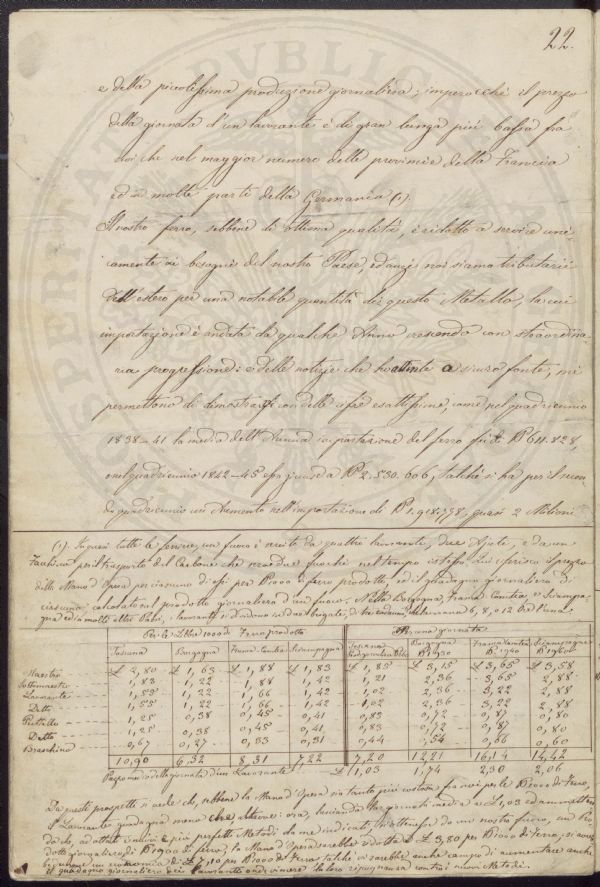 22.
e della piccolissima produzione giornaliera; imperocchè il prezzo
della giornata d'un lavorante è di gran lunga più bassa fra
noi che nel maggior numero delle provincie della Francia
ed in molte parti della Germania (1).
Il nostro ferro, sebbene di ottima qualità, è ridotto a servire uni-
camente ai bisogni del nostro Paese, ed anzi noi siamo tributarii
dell'estero per una notabile quantità di questo Metallo, la cui
importazione è andata da qualche Anno crescendo con straordina-
ria progressione: e delle notizie che ho attinte a sicura fonte, mi
permettono di dimostrare con delle cifre esattissime, come pel quadriennio
1838-41 la media dell'Annua importazione del ferro fu di 611.828,
e nel quadriennio 1842-45 era giunta a 2.530.606, talchè si ha per il secon
do quadriennio un Aumento nell'importazione di 1.918.778, quasi 2 Milioni
(1). In quasi tutte le ferriere, un fuoco è servito da quattro lavoranti, due Ajuti, e da un
per il trasporto del Carbone che serve due fuochi nel tempo istesso. Qui il prezzo
della Mano d'Opera per ciascuno di essi per 1000 di ferro prodotto, ed il guadagno giornaliero di
ciascuno, calcolato sul prodotto giornaliero d'un fuoco. Nella Borgogna, Franca Contea, e Sciampa-
gna ed in molti altri Paesi, i lavoranti si dividono in due brigate,
Per le Libbre 1000 di Ferro prodotto | Per una giornata
Toscana | Borgogna | Franca Contea | Sciampagna | Toscana | Borgogna | Franca Contea | Sciampagna
Maestro £ 2,80 | £ 1,63 | £ 1,88 | £ 1,83 | £ 1,85 | £ 3,15 | £ 3,65 | £ 3,58
Sottomaestro 1,83 | 1,22 | 1,88 | 1,42 | 1,21 | 2,36 | 3,65 | 2,88
Lavorante 1,55 | 1,22 | 1,66 | 1,42 | 1,02 | 2,36 | 3,22 | 2,88
Detto 1,55 | 1,22 | 1,66 | 1,42 | 1,02 | 2,36 | 3,22 | 2,88
1,25 | 0,38 | 0,45 | 0,41 | 0,83 | 0,72 | 0,87 | 0,80
Detto 1,25 | 0,38 | 0,45 | 0,41 | 0,83 | 0,72 | 0,87 | 0,80
0,67 | 0,27 | 0,33 | 0,31 | 0,44 | 0,54 | 0,66 | 0,60
10,90 | 6,32 | 8,31 | 7,22 | 7,20 | 12,21 | 16,14 | 14,42
Prezzo medio della giornata d'un Lavorante £ 1,03 | 1,74 | 2,30 | 2,06
Da questi prospetti si vede che, sebbene la Mano d'Opera sia tanto più costosa fra noi per le 1000 di Ferro,
il Lavorante guadagna meno che altrove: ora, lasciando la giornata media a £ 1,03 ed ammettendo
che, adottati i nuovi e più perfetti Metodi da me indicati, si ottenga da un nostro fuoco, un pro-
dotto giornaliero, di 1900 di ferro, la Mano d'Opera sarebbe ridotta a £ 3,80 per 1000 di Ferro, si avreb-
be un economia di £ 7,10 per 1000 di Ferro, talchè vi sarebbe anche campo di aumentare anche
il guadagno giornaliero dei lavoranti onde vincere la loro ripugnanza contro i nuovi Metodi.